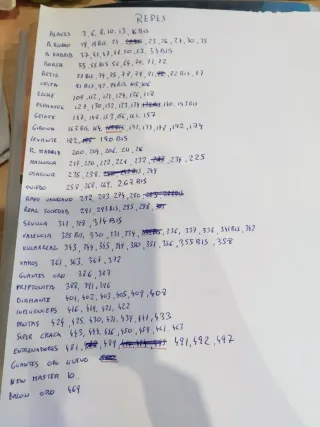 REPES
ALAVES 3, 6, 8, 10, 13, 16 BIS
A. BILBAO 19, 19 BIS 21 23, 26, 27, 30, 35
A. MADRID 37, 41, 47, 48, 50, 53, 54 BIS
BARÇA 55, 55 BIS 58, 64, 70, 71, 72
BETIS 73 BIS, 74, 75, 78, 79, 81, 82, BIS 87
CELTA 91 BIS, 97, 98 BIS 105, 106
ELCHE 109, 112, 121, 124, 126, 128
ESPANYOL 127, 130, 132, 133, 134 140, 143 BIS
GETAFE 147, 148, 153, 156, 161, 157
GIRONA 163 BIS, 164, 171, 173, 178, 172, 174
LEVANTE 182, 190 BIS
R. MADRID 200, 204, 206, 211, 216
MALLORCA 217, 220, 222, 224, 232, 234, 225
OSASUNA 235, 238, 249
OVIEDO 258, 268, 269, 267 BIS
RAYO VALLECANO 272, 273, 274, 280
REAL SOCIEDAD 291, 293 BIS, 295, 298
SEVILLA 311, 318, 314 BIS
VALENCIA 325 BIS, 330, 331, 334, 336, 337, 336, 341 BIS, 342
VILLARREAL 343, 344, 345, 349, 350, 351, 356, 355 BIS, 358
VAMOS 361, 363, 367, 372
GUANTES ORO 386, 387
KRIPTONITA 388, 391, 396
DIAMANTE 401, 402, 403, 405, 409, 408
INFLUENCERS 416, 419, 421, 422
PROTAS 424, 425, 430, 431, 439, 441, 433
SUPER CRACK 443, 444, 446, 450, 459, 461, 463
ENTRENADORES 481, 489, 491, 492, 497
GUANTES ORO NUEVO
NEW MASTER 10
BALON ORO 469